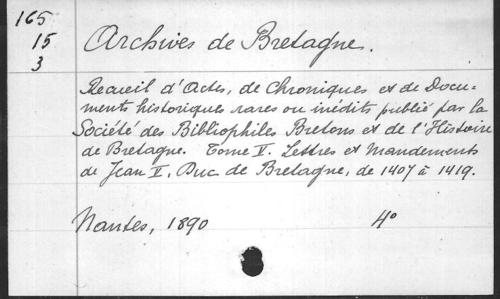 165
15
3
Archives de Bretagne.
Recueil d'Actes, de Chroniques et de Docu-
ments historiques rares ou inédits publié par la
Société des Bibliophiles Bretons et de l'Histoire
de Bretagne. Tome V. Lettres et Mandements
de Jean V, Duc de Bretagne, de 1407 à 1419.
Nantes, 1890 4º